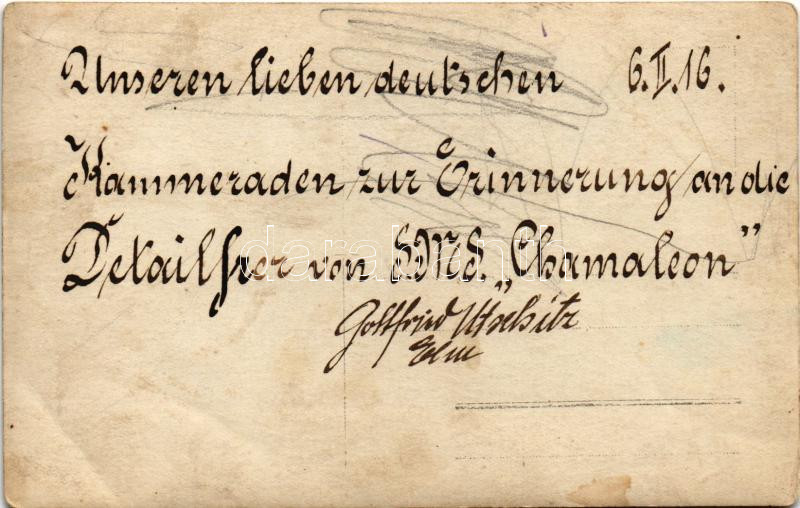 Unseren lieben deutschen 6.II.16.
Kammeraden zur Erinnerung an die
von S.M.S. „Chamaleon”
Gottfried Utschitz
darabanth